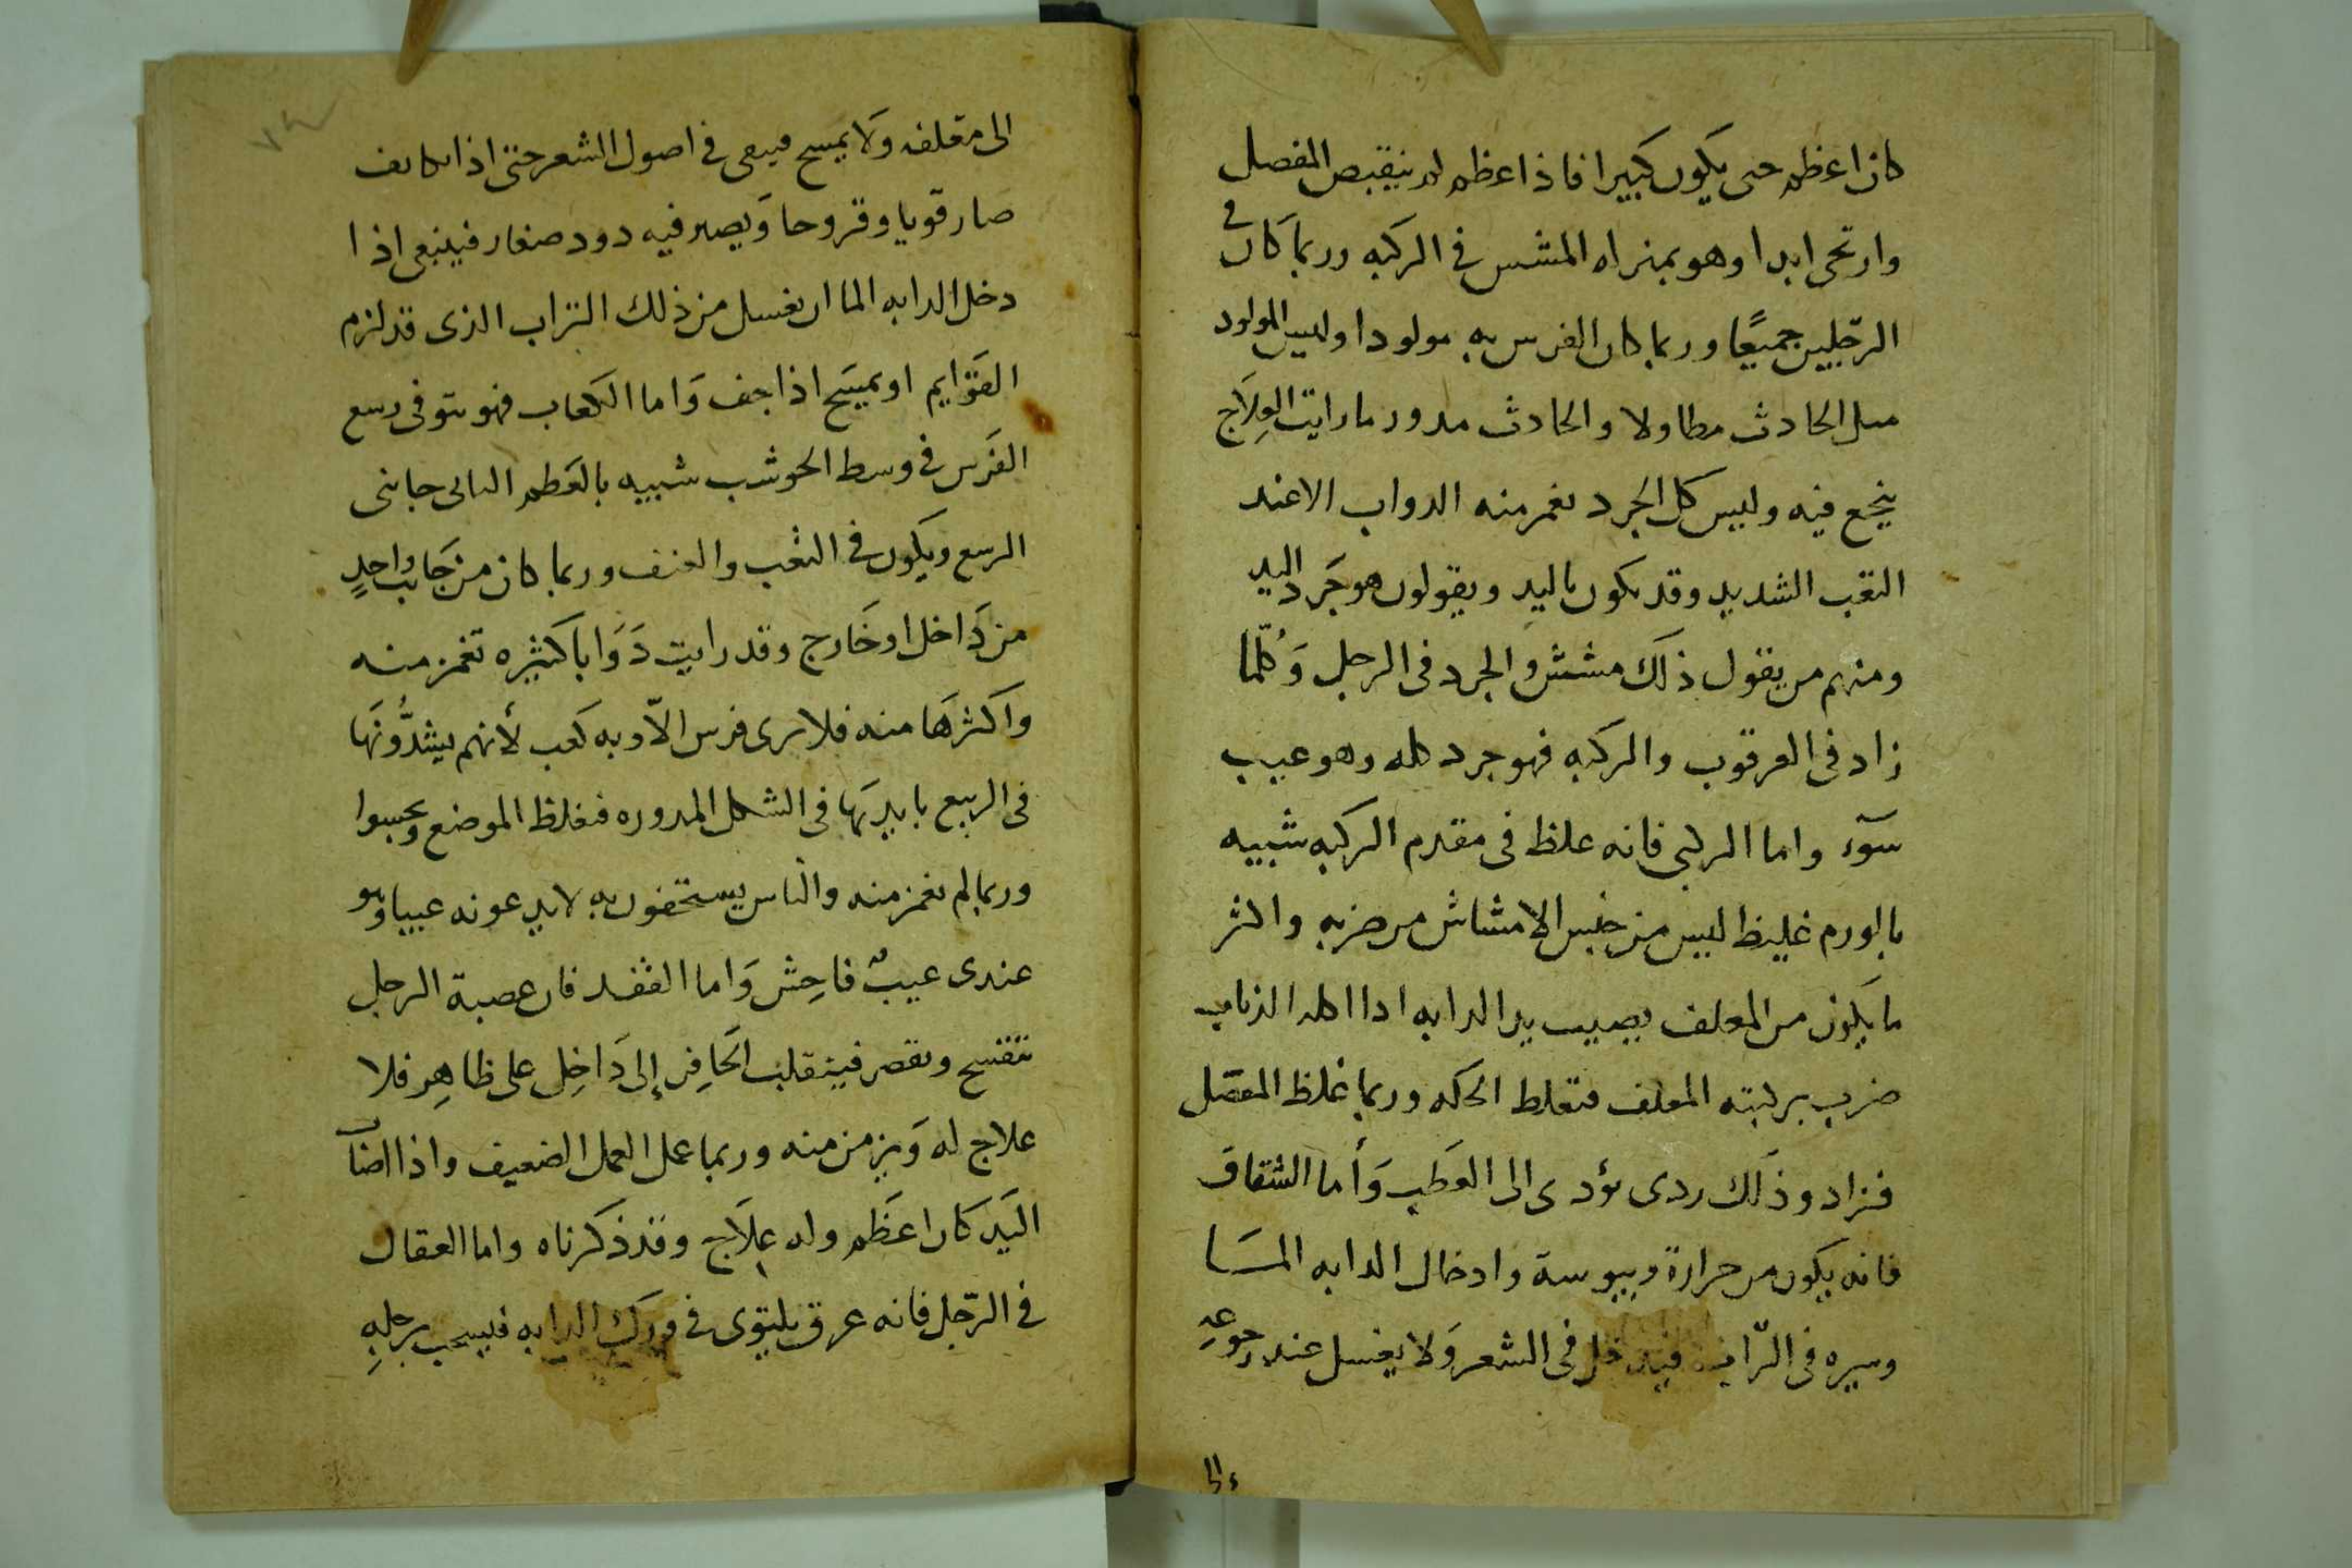 كان اعظم حتى يكون كبيرا فاذا عظم لم ينقبض المفصل
وارتخى ابدا وهو بمنزله المشش في الركبه وربما كان في
الرجلين جميعًا وربما كان الفرس به مولودا وليس المولود
مثل الحادث مطاولا والحادث مدور ما رايت العِلَاج
ينجع فيه وليس كل الجرد تغمز منه الدواب الا عند
التعب الشديد وقد يكون باليد ويقولون هو جَرد اليد
ومنهم من يقول ذلك مشش والجرد في الرجل وَكُلّما
زاد في العرقوب والركبه فهو جرد كله وهو عيب
سَوء واما الركبى فانه غلظ في مقدم الركبه شبيه
بالورم غليظ ليس من جنس الامشاش من ضربه واكثر
ما يكون من المعلف يصيب يد الدابه اذا اكله الذباب
ضرب بركبته المعلف فتغلظ الحكه وربما غلظ المفصل
فزاد وذَلك ردى يؤدى الى العَطَب وَأما الشقاق
فانه يكون من حرارة ويبوسة وادخال الدابه المسَا
وسيره في التراب فيدخل في الشعر وَلا يغسل عند رجوعِهِ
الى
الى معلفه وَلا يمسح فيبقى في اصول الشعر حتى اذا تكاثف
صار قوبا وقروحا وَيصير فيه دود صغار فينبغى اذا
دخل الدابه الما ان يغسل من ذلك التراب الذى قد لزم
القَوَايم او يمسَح اذا جف وَاما الكعاب فهو نتو في رسغ
الفَرَس في وسط الحوشب شبيه بالعَظم الناتى جانبى
الرسغ ويكون في التعب والعنف وربما كان من جَانب واحدٍ
من دَاخل او خَارج وقد رايت دَوَابا كثيره تغمز منه
واكثرهَا منه فلا ترى فرس الاّ وبه كعب لأنهم يشدُّونَهَا
في الربيع بايديهَا في الشكل المدوره فغلظ الموضع
وربما لم تغمز منه والناس يستخفون به لا يدعونه عيبا وهو
عندى عيبٌ فاحِش وَاما القفد فان عصبة الرجل
تتفسح وتقصر فينقلب الحَافِر إلى دَاخِل على ظاهِر فلا
علاج له وَيزمن منه وربما عمل العمل الضعيف واذا اصاب
اليَد كان اعظَم وله عِلَاج وقد ذكرناه واما العقال
في الرّجل فانه عرق يلتوى في ورك الدابه فيسحب برجلِهِ